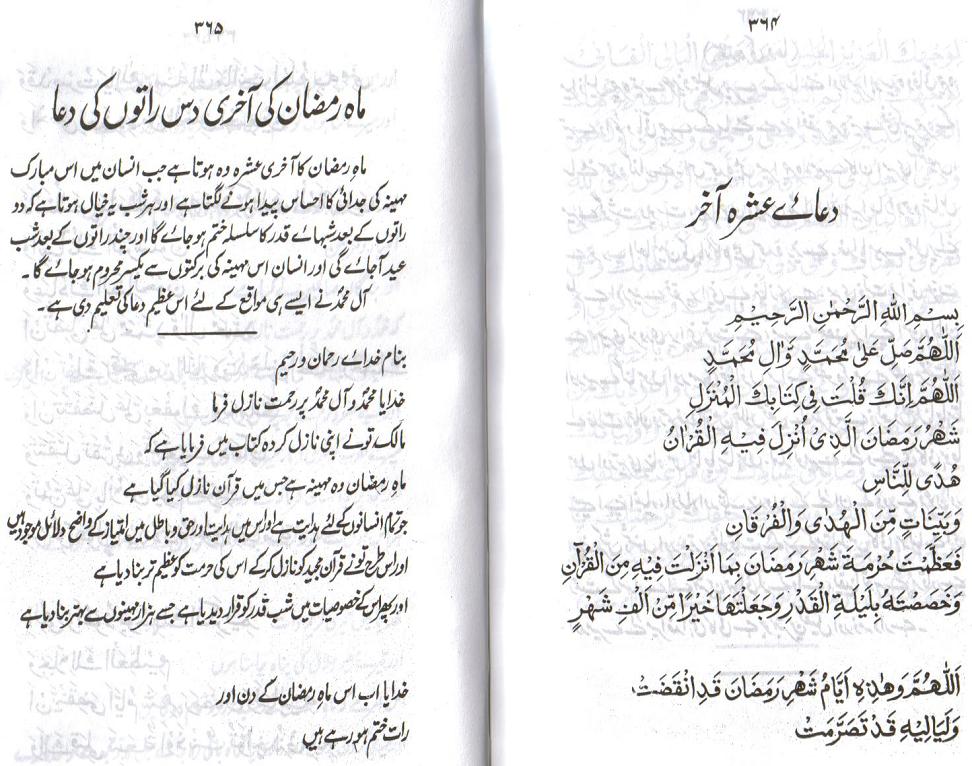 ۳۶۴
دعائے عشرہ آخر
بِسْمِ اللهِ الرَّحْمٰنِ الرَّحِيْمِ
اَللّٰهُمَّ صَلِّ عَلٰى مُحَمَّدٍ وَّاٰلِ مُحَمَّدٍ
اَللّٰهُمَّ اِنَّكَ قُلْتَ فِى كِتَابِكَ الْمُنْزَلِ
شَهْرُ رَمَضَانَ الَّذِىْ اُنْزِلَ فِيْهِ الْقُرْاٰنُ
هُدًى لِّلنَّاسِ
وَبَيِّنَاتٍ مِّنَ الْهُدٰى وَالْفُرْقَانِ
فَعَظَّمْتَ حُرْمَةَ شَهْرِ رَمَضَانَ بِمَا اَنْزَلْتَ فِيْهِ مِنَ الْقُرْآنِ
وَخَصَصْتَهٗ بِلَيْلَةِ الْقَدْرِ وَجَعَلْتَهَا خَيْرًا مِّنْ اَلْفِ شَهْرٍ
اَللّٰهُمَّ وَهٰذِهٖ اَيَّامُ شَهْرِ رَمَضَانَ قَدِ انْقَضَتْ
وَلَيَالِيْهِ قَدْ تَصَرَّمَتْ
۳۶۵
ماہ رمضان کی آخری دس راتوں کی دعا
ماہ رمضان کا آخری عشرہ وہ ہوتا ہے جب انسان میں اس مبارک
مہینہ کی جدائی کا احساس پیدا ہونے لگتا ہے اور ہر شب یہ خیال ہوتا ہے کہ دو
راتوں کے بعد شبہائے قدر کا سلسلہ ختم ہو جائے گا اور چند راتوں کے بعد شب
عید آجائے گی اور انسان اس مہینہ کی برکتوں سے یکسر محروم ہو جائے گا۔
آل محمدؐ نے ایسے ہی مواقع کے لئے اس عظیم دعا کی تعلیم دی ہے۔
بنام خدائے رحمان و رحیم
خدایا محمدؐ و آل محمدؐ پر رحمت نازل فرما
مالک تو نے اپنی نازل کردہ کتاب میں فرمایا ہے کہ
ماہ رمضان وہ مہینہ ہے جس میں قرآن نازل کیا گیا ہے
جو تمام انسانوں کیلئے ہدایت ہے اور اس میں ہدایت اور حق و باطل میں امتیاز کے واضح دلائل موجود ہیں
اور اس طرح تو نے قرآن مجید کو نازل کر کے اس کی حرمت کو عظیم تر بنا دیا ہے
اور پھر اس کے خصوصیات میں شب قدر کو قرار دیدیا ہے جسے ہزار مہینوں سے بہتر بنا دیا ہے
خدایا اب اس ماہ رمضان کے دن اور
رات ختم ہو رہے ہیں